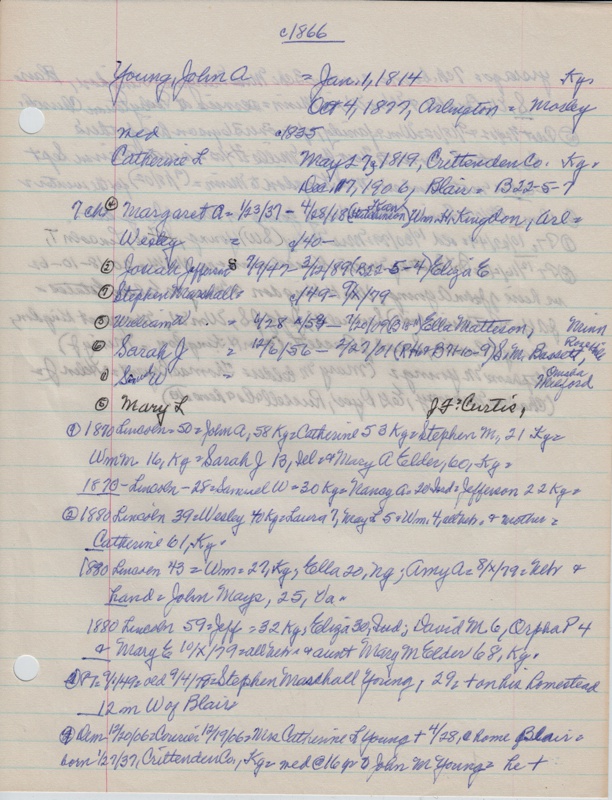 c1866
Young, John A = Jan. 1, 1814 Ky=
Oct 4, 1877, Arlington = Mosley
med c1835
Catherine L. May 27, 1819, Crittenden Co. Ky.
Dec. 17, 1906, Blair = B22-5-7
7 ch= Margaret A = 1/23/37 - 4/28/68 Wm. H. Kingdon, Arl =
Wesley = c/40-
Josiah Jefferson 7/9/47 - 3/2/89 (B22-5-4) Eliza E
Stephen Marshall = c/49 - 9/x/79
William W. = 4/28 - 7/20/09 Ella Matteson, Minn
Sarah J = 12/6/56 - 2/27/01 S.M. Bassett, Omaha
W
Mary L J.F. Curtis,
1870 Lincoln = 50 = John A, 58 Ky = Catherine 53 Ky = Stephen M, 21 Ky =
Wm M 16, Ky = Sarah J 13, = + Mary A Elder, 60, Ky =
1870 - Lincoln - 28 = Samuel W = 30 Ky = Nancy A = 20 Ind = Jefferson 22 Ky =
1880 Lincoln 39 = Wesley 40 Ky = Laura 7, May L 5 + Wm. 4, all Neb. + mother =
Catherine 61, Ky.
1880 Lincoln 43 = Wm = 27, Ky; Ella 20, ; Amy A = 8/x/79 = Nebr +
hand = John Mays, 25, Va =
1880 Lincoln 59 = Jeff = 32 Ky; Eliza 30, Ind; David M 6, Orpha P 4
+ Mary E 10/x/79 = all Neb = + aunt Mary M Elder 68, Ky.
9/1/49 = ded 9/4/79 = Stephen Marshall Young, 29 = + on his homestead
12 m W of Blair
12/20/06 = Courier 12/19/06 = Mrs Catherine L Young + 4/28, @ home Blair =
born 1/27/37, Crittenden Co., Ky = med @ 16 yr to John M Young = he +